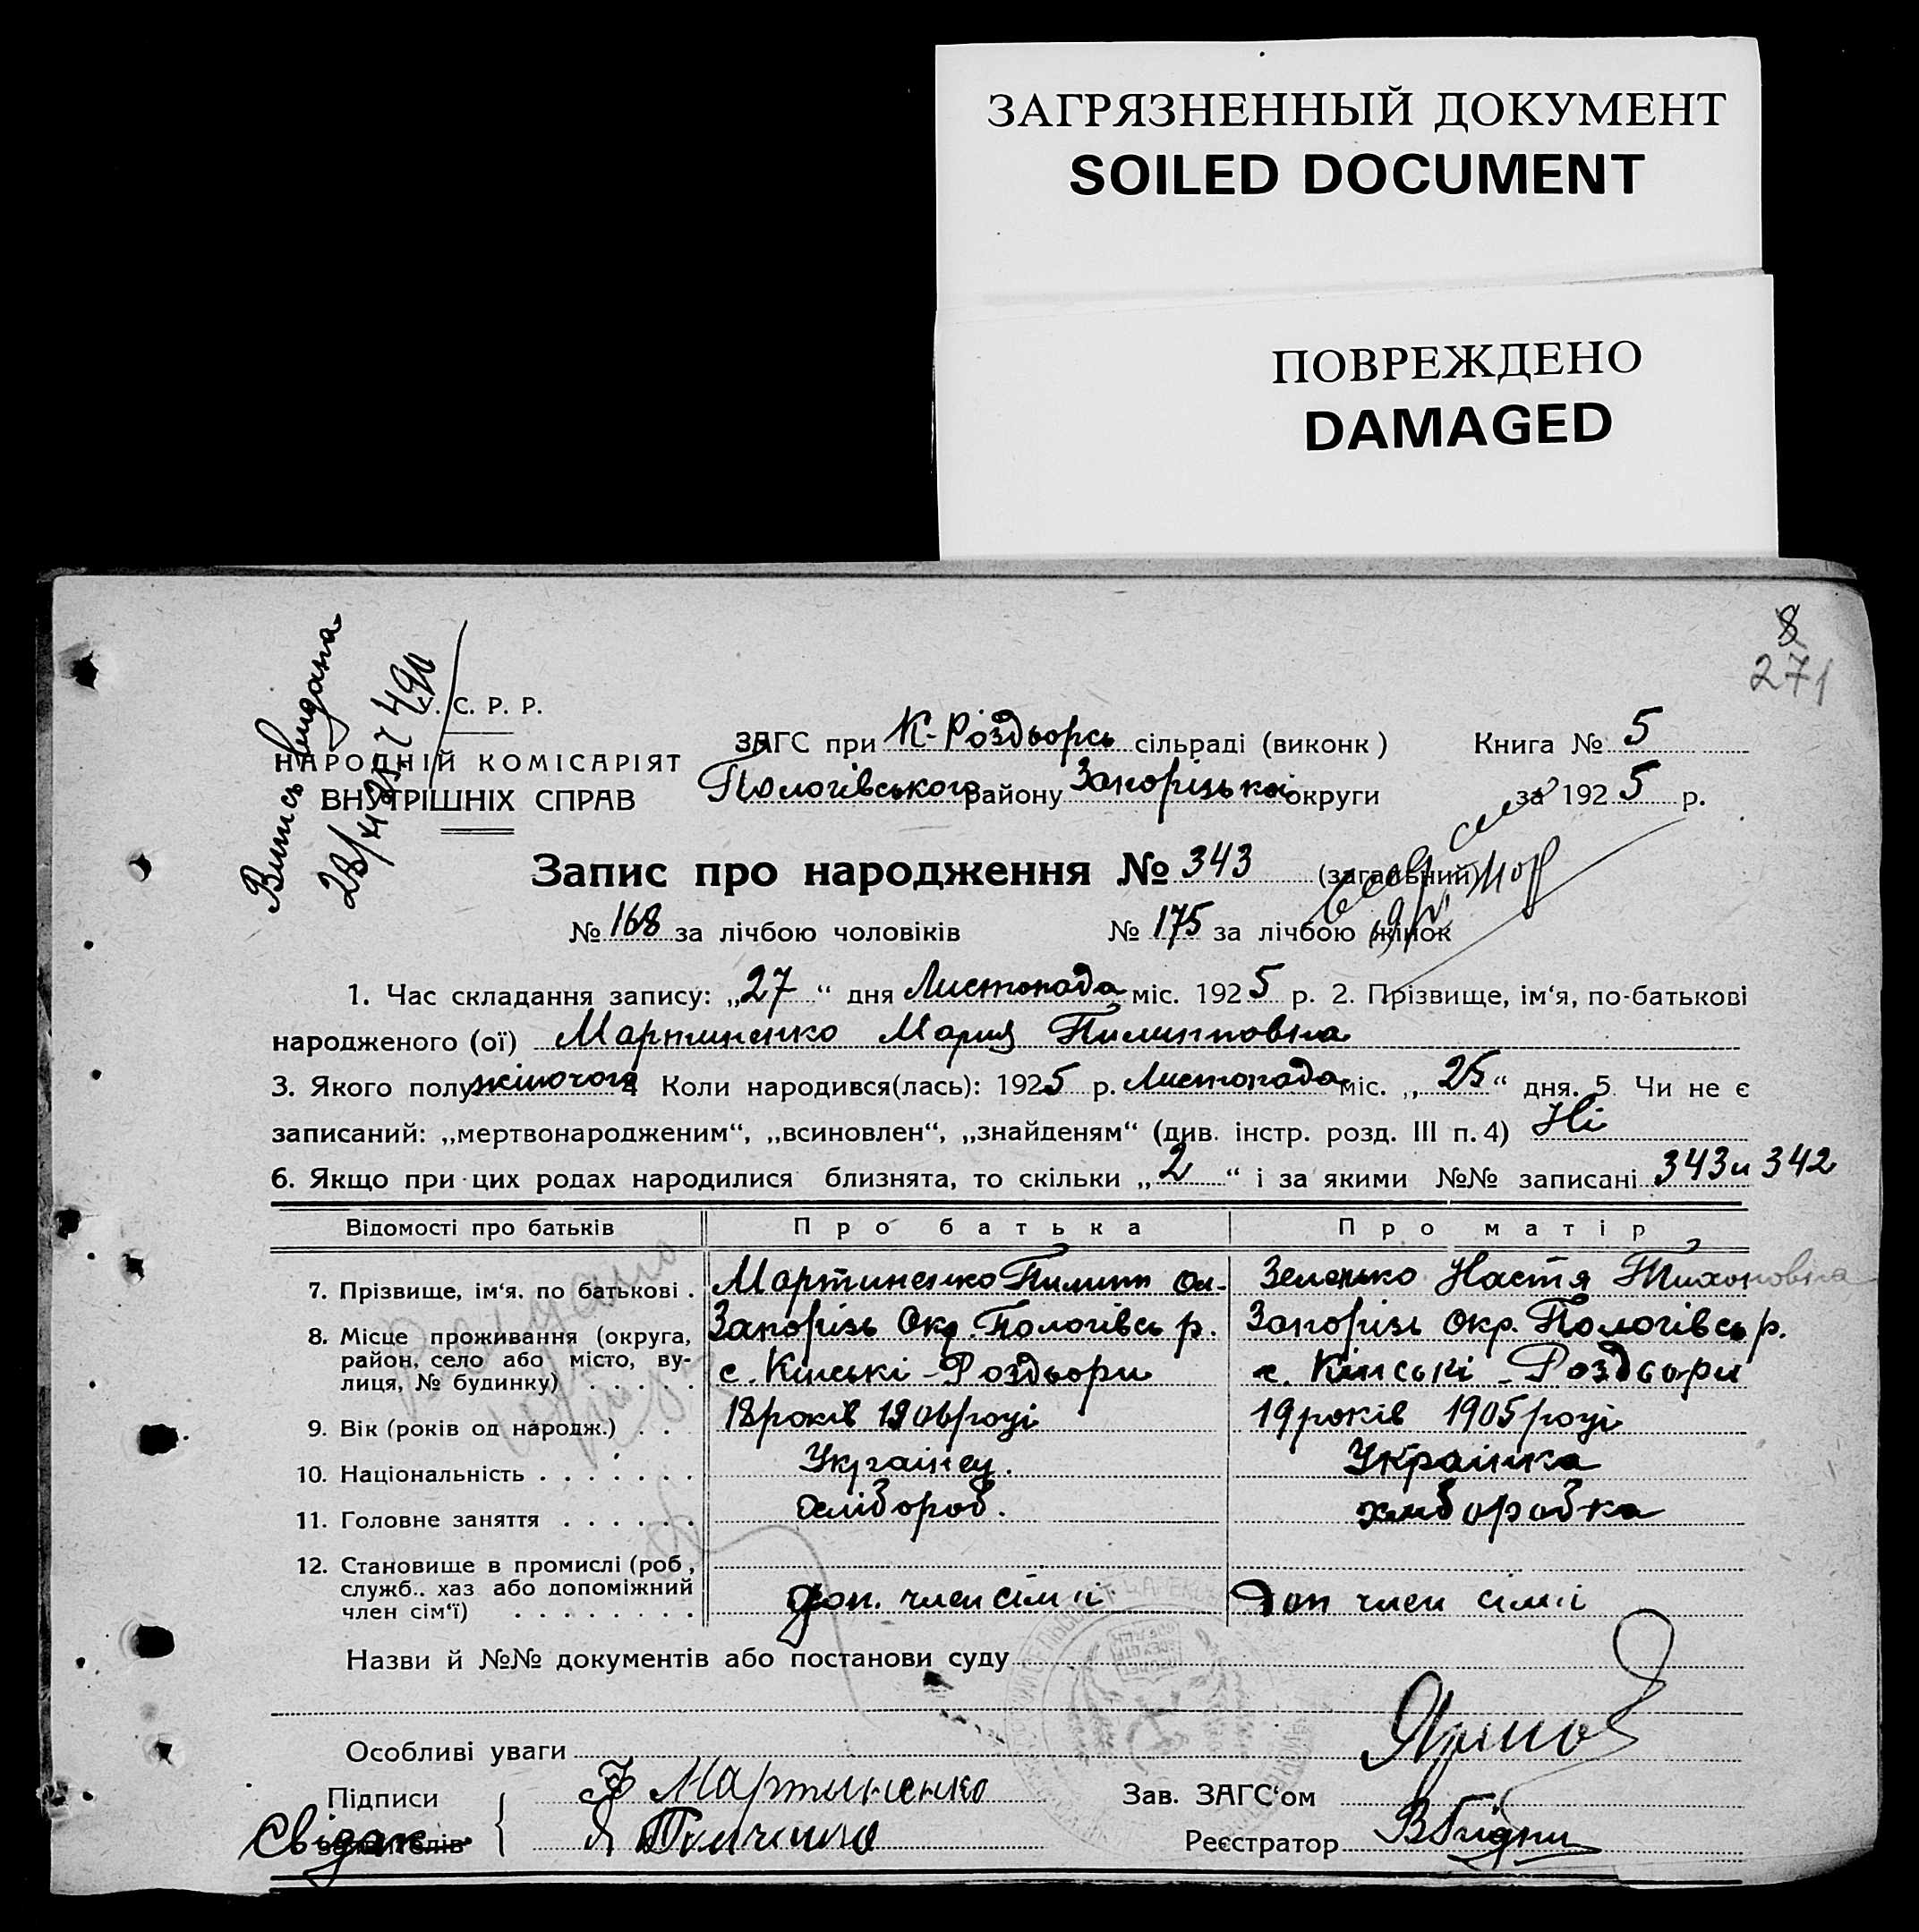 ЗАГРЯЗНЕННЫЙ ДОКУМЕНТ
SOILED DOCUMENT
ПОВРЕЖДЕНО
DAMAGED
8
271
Випись видана
С. Р. Р.
НАРОДНІЙ КОМІСАРІЯТ
ВНУТРІШНІХ СПРАВ
ЗАГС при К-Роздворсь сільраді (виконк) Книга № 5
Пологівського району Запорізької округи за 1925 р.
Запис про народження № 343 (загальний)
№ 168 за лічбою чоловіків № 175 за лічбою жінок
1. Час складання запису: „27“ дня Листопада міс. 1925 р. 2. Прізвище, ім‘я, по-батькові
народженого (ої) Мартиненко Мария Пилипповна
3. Якого полу жіночого 4 Коли народився(лась): 1925 р. Листопада міс. „25“ дня. 5. Чи не є
записаний: „мертвонародженим“, „всиновлен“, „знайденям“ (див. інстр. розд. III п. 4) Ні
6. Якщо при цих родах народилися близнята, то скільки „2“ і за якими №№ записані 343 и 342
Відомості про батьків Про батька Про матір
7. Прізвище, ім‘я, по батькові . Мартиненко Пилип Ол. Зеленько Настя Тихоновна
8. Місце проживання (округа, Запорізь Окр. Пологівсь р. Запорізь Окр. Пологівсь р.
район, село або місто, ву-
лиця, № будинку) . . . . . с. Кінські-Роздори с. Кінські-Роздори
9. Вік (років од народж.) . . . 18 років 1906 році 19 років 1905 році
10. Національність . . . . . . . Українец. Українка
11. Головне заняття . . . . . . хлібороб. хліборобка
12. Становище в промислі (роб.,
служб., хаз або допоміжний
член сім‘ї) . . . . . . . . доп. член сімії Доп член сімії
Назви й №№ документів або постанови суду
Особливі уваги
Підписи Мартиненко Зав. ЗАГС‘ом
Свідак. заявителів Реєстратор